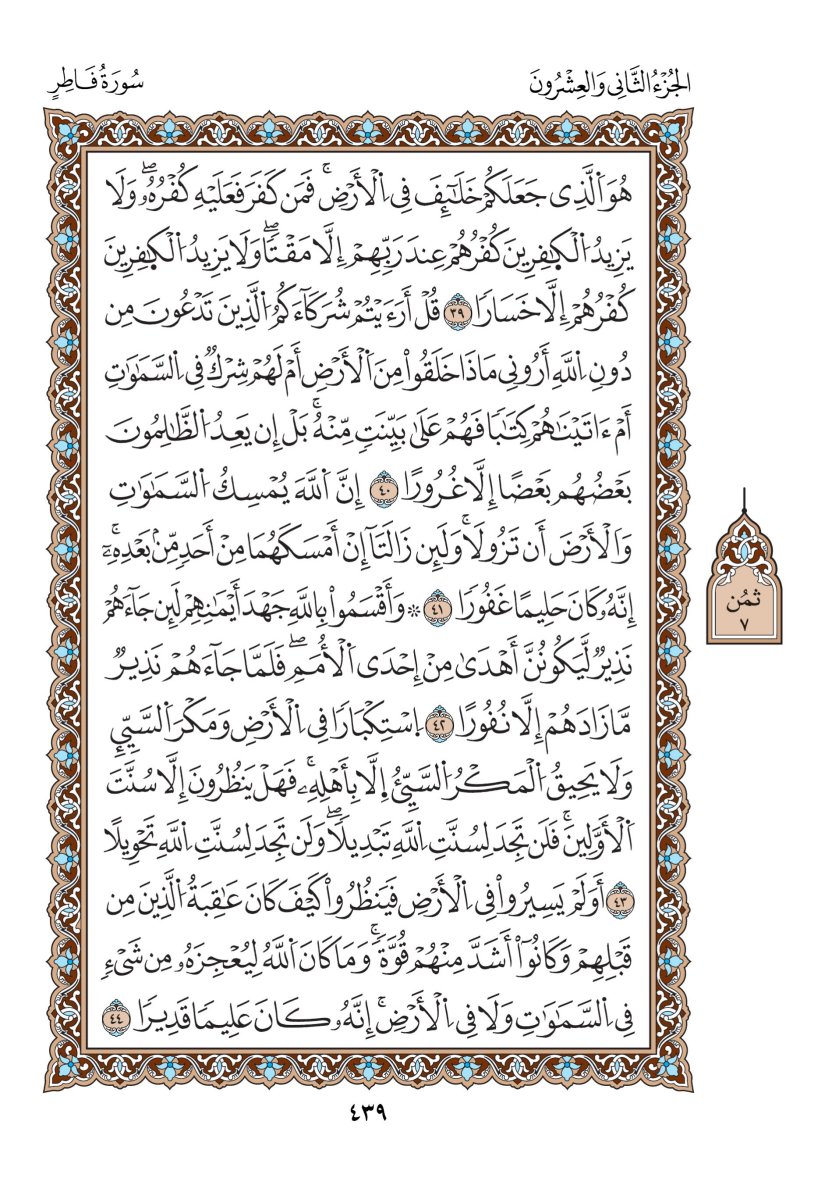 الجُزْءُ الثَّانِى وَالعِشْرُونَ
سُورَةُ فَاطِرٍ
هُوَ اَ۬لَّذِى جَعَلَكُمْ خَلَٰٓئِفَ فِى اِ۬لْأَرْضِۚ فَمَن كَفَرَ فَعَلَيْهِ كُفْرُهُۥۖ وَلَا
يَزِيدُ اُ۬لْكَٰفِرِينَ كُفْرُهُمْ عِندَ رَبِّهِمْ إِلَّا مَقْتًاۖ وَلَا يَزِيدُ اُ۬لْكَٰفِرِينَ
كُفْرُهُمْ إِلَّا خَسَارًا ٣٩ قُلْ أَرَءَيْتُمْ شُرَكَآءَكُمُ اُ۬لَّذِينَ تَدْعُونَ مِن
دُونِ اِ۬للَّهِ أَرُونِى مَاذَا خَلَقُواْ مِنَ اَ۬لْأَرْضِ أَمْ لَهُمْ شِرْكٌ فِى اِ۬لسَّمَٰوَٰتِ
أَمْ ءَاتَيْنَٰهُمْ كِتَٰبًا فَهُمْ عَلَىٰ بَيِّنَتٍ مِّنْهُۚ بَلْ إِن يَعِدُ اُ۬لظَّٰلِمُونَ
بَعْضُهُم بَعْضًا إِلَّا غُرُورًا ٤٠ إِنَّ اَ۬للَّهَ يُمْسِكُ اُ۬لسَّمَٰوَٰتِ
وَالْأَرْضَ أَن تَزُولَاۚ وَلَئِن زَالَتَآ إِنْ أَمْسَكَهُمَا مِنْ أَحَدٍ مِّنۢ بَعْدِهِۦٓۚ
إِنَّهُۥ كَانَ حَلِيمًا غَفُورًا ٤١ ۞ وَأَقْسَمُواْ بِاللَّهِ جَهْدَ أَيْمَٰنِهِمْ لَئِن جَآءَهُمْ
نَذِيرٌ لَّيَكُونُنَّ أَهْدَىٰ مِنْ إِحْدَى اَ۬لْأُمَمِۖ فَلَمَّا جَآءَهُمْ نَذِيرٌ
مَّا زَادَهُمْ إِلَّا نُفُورًا ٤٢ اِ۪سْتِكْبَارًا فِى اِ۬لْأَرْضِ وَمَكْرَ اَ۬لسَّيِّئِ
وَلَا يَحِيقُ اُ۬لْمَكْرُ اُ۬لسَّيِّئُ إِلَّا بِأَهْلِهِۦۚ فَهَلْ يَنظُرُونَ إِلَّا سُنَّتَ
اَ۬لْأَوَّلِينَۚ فَلَن تَجِدَ لِسُنَّتِ اِ۬للَّهِ تَبْدِيلًاۖ وَلَن تَجِدَ لِسُنَّتِ اِ۬للَّهِ تَحْوِيلًا
٤٣ أَوَلَمْ يَسِيرُواْ فِى اِ۬لْأَرْضِ فَيَنظُرُواْ كَيْفَ كَانَ عَٰقِبَةُ اُ۬لَّذِينَ مِن
قَبْلِهِمْ وَكَانُوٓاْ أَشَدَّ مِنْهُمْ قُوَّةًۚ وَمَا كَانَ اَ۬للَّهُ لِيُعْجِزَهُۥ مِن شَىْءٍ
فِى اِ۬لسَّمَٰوَٰتِ وَلَا فِى اِ۬لْأَرْضِۚ إِنَّهُۥ كَانَ عَلِيمًا قَدِيرًا ٤٤
ثمُن
٧
٤٣٩